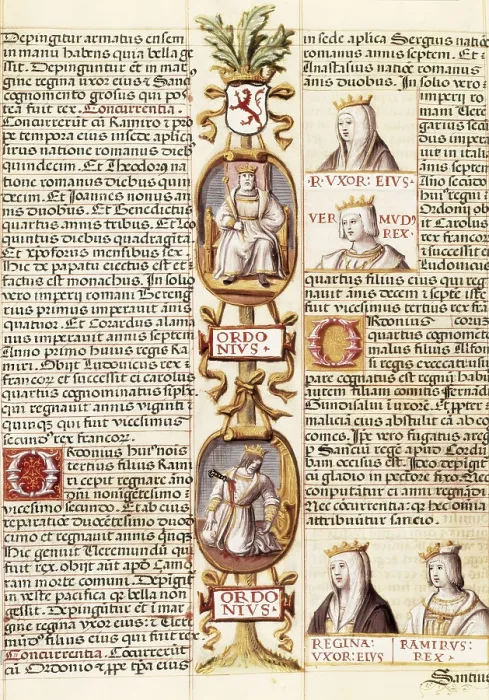 Depingitur armatus ensem
in manu habens quia bella ge
ssit. Depinguntur et in mar
gine regina uxor eius & Sanc
cognomento grosus qui pos
tea fuit rex. Concurrentia.
Concurrerut cu Ramiro &
pe tempora eius in sede aplica
irus natione romanus dieb
quindecim. Et Theodorus na
tione romanus diebus quin
decim. Et Joannes nonus an
nis duobus. Et Benedictus
quartus annis tribus. Et Leo
quintus diebus quadragita
Et Xpoforus mensibus sex.
Hic de papatu eiectus est et
factus est monachus. In solio
vero imperii romani Bereng
rius primus imperavit annis
quatuor. Et Corardus alama
nus imperavit annis septem
Anno primo huius regis Ra
miri. Obijt Ludovicus rex
francor et successit ei carolus
quartus cognominatus siplx
qui regnavit annis viginti &
quinqz qui fuit vicesimus
secund9 rex francor.
ORdonius hui9 nois
tertius filius Rami
ri cepit regnare ano
dni nonigetesimo &
vicesimo secundo. Et ab eius
reparatioe ducetesimo duod
cimo et regnavit annis qinqz
Hic genuit Veremundu qui
fuit rex. obijt aut apd Camo
ram morte comuni. Depigit
in veste pacifica qz bella non
gessit. Depingutur et i mar
gine regina uxor eius: & Vere
mud9 filius eius qui fuit rex.
Concurrentia. Cocurrerut
cu Ordonio & tpe eius
ORDO
NIVS
ORDO
NIVS
in sede aplica Sergius natioe
romanus annis septem. Et
Anastasius natioe romanus
anis duobus. In solio vero
imperij ro
mani
garius secu
dus impera
uit in italia
anis septem
Ano secudo
hui9 regni
Ordonij ob
it Carolus
rex francor
& successit ei
Ludovicus
R. VXOR: EIVS
VERMVD9
REX
quartus filius eius qui reg
navit anis decem & septe iste
fuit vicesimus tertius rex fra
ORdonius
quartus cognometo
malus filius Alfon
si regis execati
pare cognatus est regni habu
autem filiam comitis Fernadi
Gundisalui i uxore. Et ppter
malicia eius abstulit ea ab eo
comes. Ipe vero fugatus a reg
p Sanciu rege apud Cordu
bam occisus est. Ideo depigit
cu gladio in pectore fixo. Nec
conputatur ei anni regnadi
Nec cocurrentia: qz hec omia
attribuutur sancio.
REGINA:
VXOR: EIVS
RAMIRVS:
REX
Santius